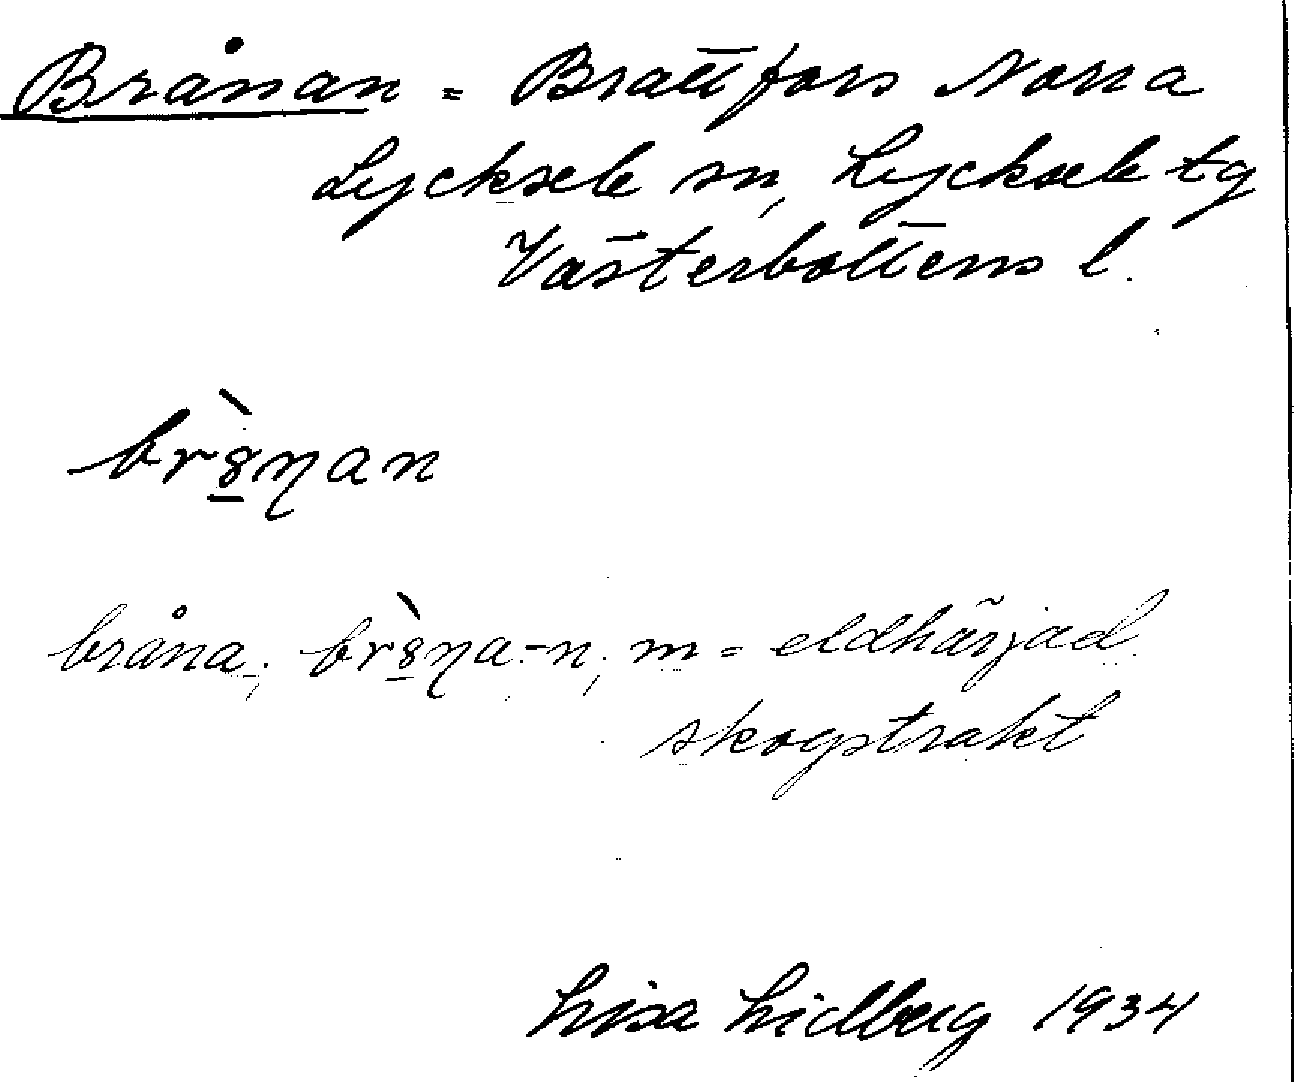 Brånan = Brattfors Norra
Lycksele sn, Lycksele tg
Västerbottens l.
br8̲̀ŋan
bråna; br8̲̀ŋa -n; m = eldhärjad
skogstrakt
Lisa Lidberg 1934